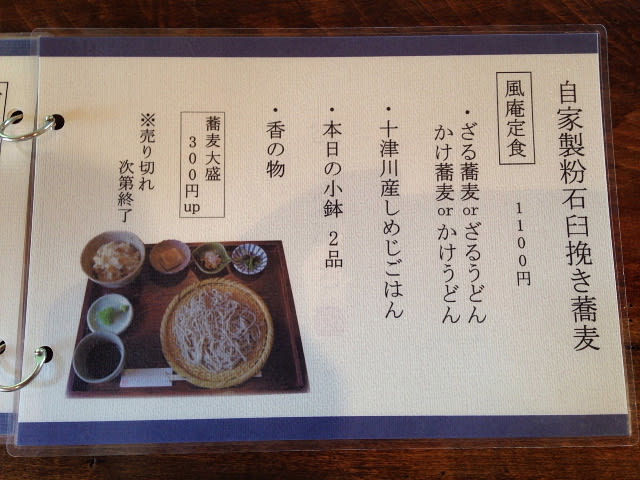 自家製粉石臼挽き蕎麦
風庵定食
1100円
・ざる蕎麦orざるうどん
かけ蕎麦orかけうどん
・十津川産しめじごはん
・本日の小鉢 2品
・香の物
蕎麦大盛
300円up
※売り切れ
次第終了